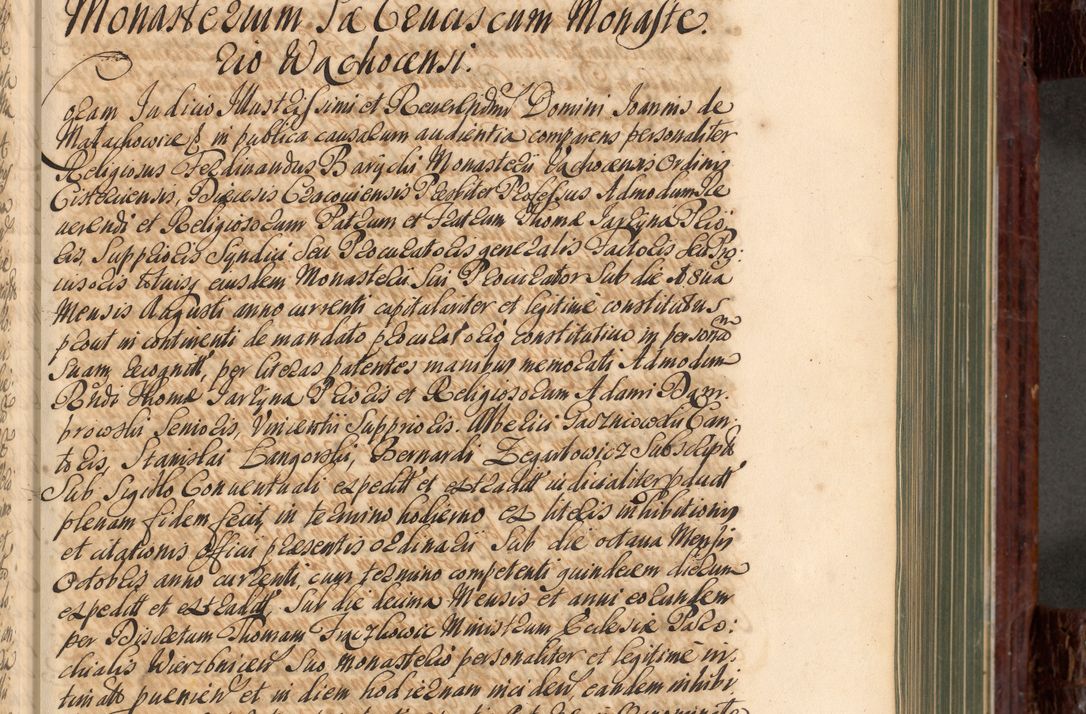 Monasterium Sæ Crucis cum Monaste.
rio Wachocensi.
oram Judicio Illustrissimi et Reverendmi Domini Joannis de
Małachowice in publica causarum audientia comparens personaliter
Religiosus Ferdinandus Barycki Monasterii Vachocensis Ordinis
Cisterciensis, Diæcesis Cracoviensis Præsbiter Professus Admodum Re
verendi et Religiosorum Patrum et Fratrum Thomæ Jarzyna Prio
ris, Supprioris Syndici seu Procuratoris generalis Factoris
eiusdem Monasterii Sui Procurator Sub die
Mensis Augusti anno currenti capitulariter et legitime constitutus
prout in continenti de mandato procuratorio constitutiæ in personam
Suam recognitt, per literas patentes manibus memorati Admodum
Rndi Thomæ Jarzyna Prioris et Religiosorum Adami Dam
browski Senioris, Vincentii Supprioris. Alberici Can
toris, Stanislai Bernardi Zegartowicz Subscript
Sub Sigillo Conventuali expeditt et extraditt iudicialiter
plenam fidem fecit, in termino hodierno ex literis inhibitionis
et citationis officii præsentis ordinarii Sub die octava Mensis
Octobris anno currenti cum termino competenti quindecem dierum
expeditt et extraditt, Sub die decima Mensis et anni eorundem
per Discretum Thomam Ministrum Eclesiæ Paro:
chialis Wierzbnicen Suo Monasterio personaliter et legitime in
timatt et in diem hodiernam inciden, eandem inhibi